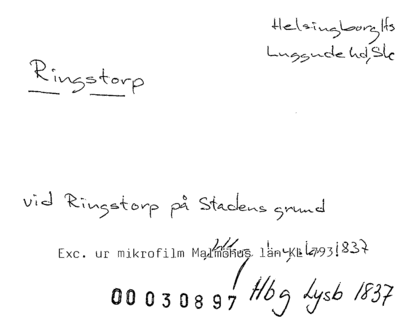 Helsingborg lfs
Luggude hd, Sk
Ringstorp
vid Ringstorp på Stadens grund
Exc. ur mikrofilm Malmöhus län 1837
00 030897 Hbg Lysb 1837